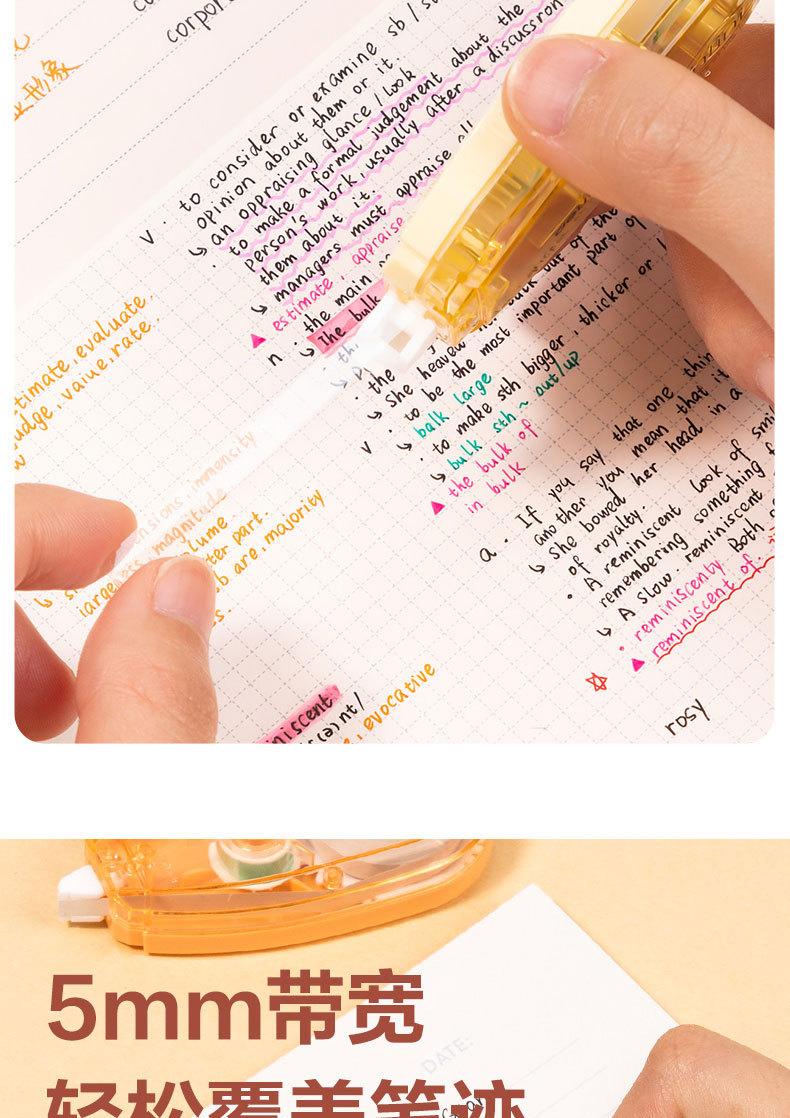 corpor
形象
v. to consider or examine sb / s
opinion about them or it
↳ an appraising glance / look
· to make a formal judgement about the
person's work, usually after a discussion
them about it.
↳ managers must appraise all
▲ estimate, appraise
n · the main
↳ The bulk
· the
↳ She heaved
out of the
· to be the most important part of
↳ balk large
v · to make sth bigger, thicker or
↳ bulk sth ~ out/up
▲ the bulk of
in bulk
timate, evaluate
udge, value, rate.
ensions, immensity
largeness, magnitude
lume
ter part.
b are, majority
s.
a · If you say that one thin
another you mean that it
↳ She bowed her head in a
of royalty.
· A reminiscent look of smi
remembering something
↳ A slow, reminiscent
Both
· reminiscently
▲ reminiscent of
niscent
(ə)nt/
, evocative
rosy
5mm带宽
DATE:
轻松覆盖笔迹